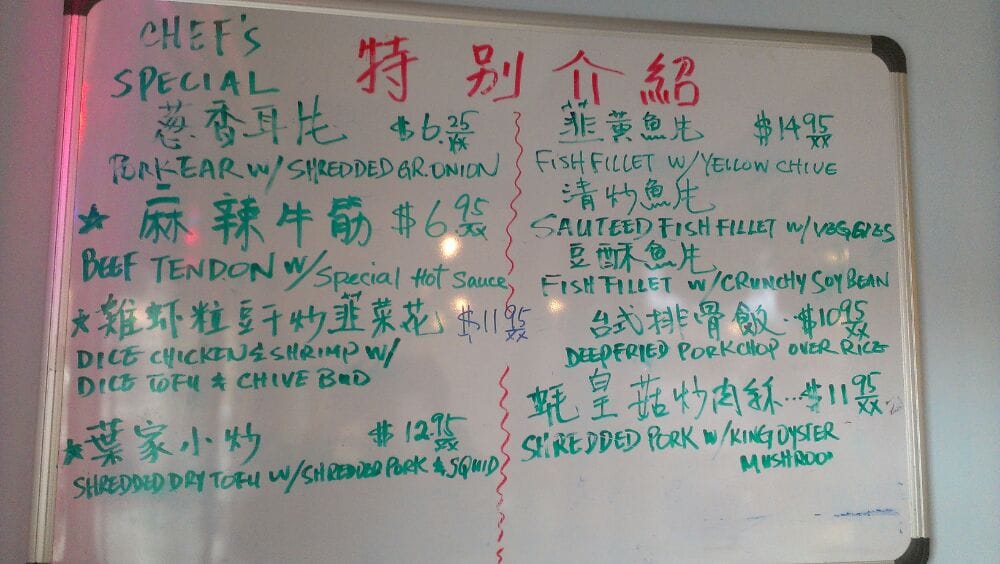 CHEF'S
SPECIAL
特别介紹
葱香耳片 $6.25
PORK EAR W/ SHREDDED GR. ONION
★ 麻辣牛筋 $6.95
BEEF TENDON W/ Special Hot Sauce
★ 雞虾粒豆干炒韮菜花 $11.95
DICE CHICKEN & SHRIMP W/
DICE TOFU & CHIVE BUD
★ 葉家小炒 $12.95
SHREDDED DRY TOFU W/ SHREDDED PORK & SQUID
韮黄魚片 $14.95
FISH FILLET W/ YELLOW CHIVE
清炒魚片
SAUTEED FISH FILLET W/ VEGGIES
豆酥魚片
FISH FILLET W/ CRUNCHY SOY BEAN
台式排骨飯 $10.95
DEEPFRIED PORKCHOP OVER RICE
皇菇炒肉 $11.95
SHREDDED PORK W/ KING OYSTER
MUSHROO